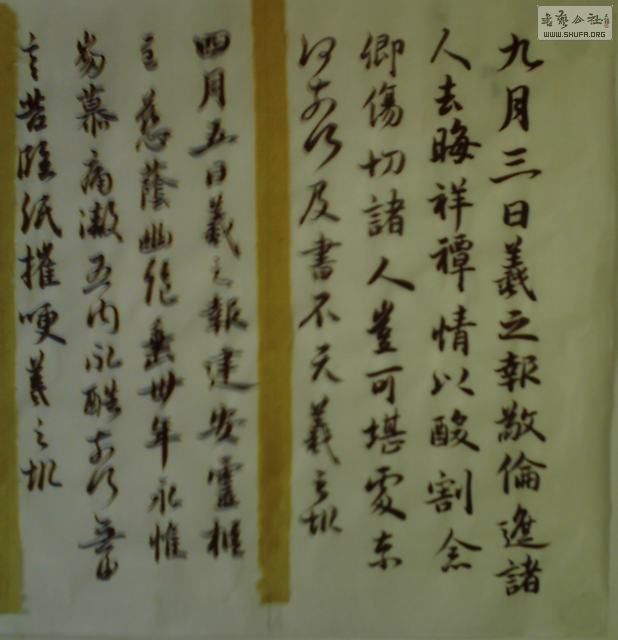 書藝公社
WWW.SHUFA.ORG
九月三日羲之報敬倫遮諸
人去晦祥禫情以酸割念
卿傷切諸人豈可堪處奈
何奈何及書不次羲之報
四月五日羲之報建安靈柩
至慈蔭幽絕垂卅年永惟
崩慕痛徹五內永酷奈何無由
言苦臨紙摧哽羲之報